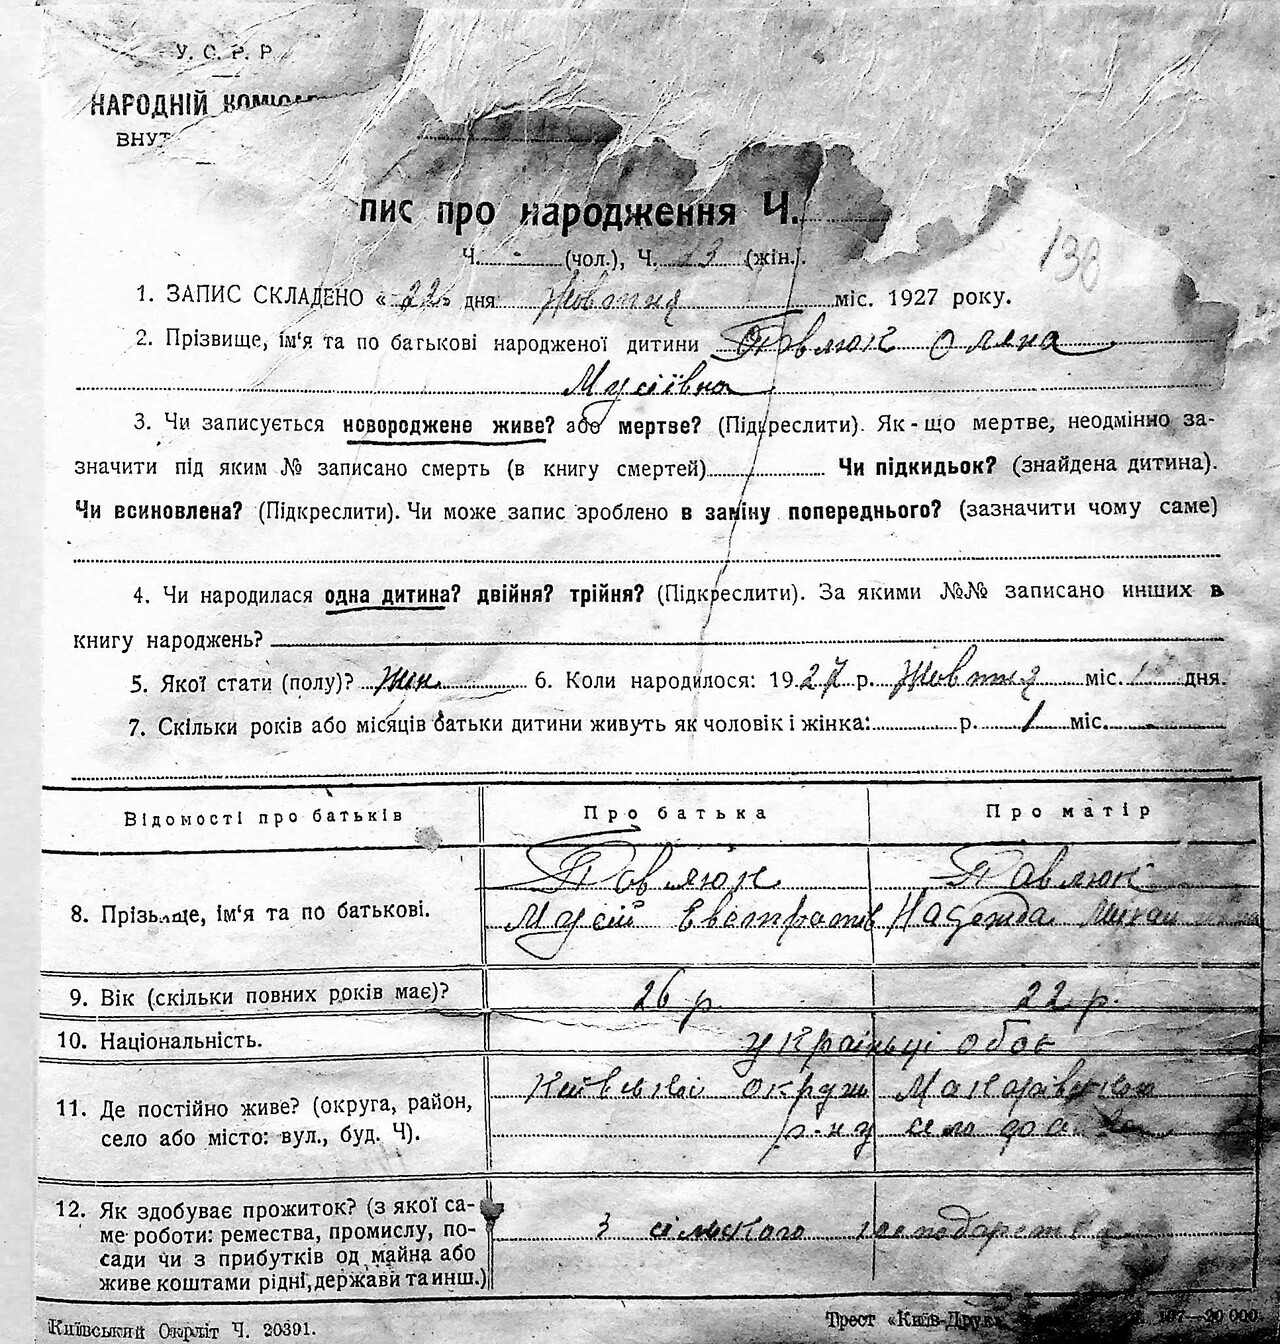 У. С. Р. Р.
НАРОДНІЙ
ВНУТ
пис про народження Ч.
Ч. - (чол.), Ч. (жін.).
138
1. ЗАПИС СКЛАДЕНО « 22 » дня Жовтня міс. 1927 року.
2. Прізвище, ім'я та по батькові народженої дитини Павлюк Оляна
Мусіївна
3. Чи записується новороджене живе? або мертве? (Підкреслити). Як-що мертве, неодмінно за-
значити під яким № записано смерть (в книгу смертей) Чи підкидьок? (знайдена дитина).
Чи всиновлена? (Підкреслити). Чи може запис зроблено в заміну попереднього? (зазначити чому саме)
4. Чи народилася одна дитина? двійня? трійня? (Підкреслити). За якими №№ записано инших в
книгу народжень?
5. Якої стати (полу)? жін. 6. Коли народилося: 1927 р. Жовтня міс. дня.
7. Скільки років або місяців батьки дитини живуть як чоловік і жінка: р. 1 міс. -
Відомості про батьків Про батька Про матір
Павлюк Павлюк
8. Прізвище, ім'я та по батькові. Мусій Евстратов Надежда
9. Вік (скільки повних років має)? 26 р. 22 р.
10. Національність. україньці обоє
11. Де постійно живе? (округа, район, Київської округи Макарівського
село або місто: вул., буд. Ч). р-ну село
12. Як здобуває прожиток? (з якої са-
ме роботи: ремества, промислу, по- З сільского господарства
сади чи з прибутків од майна або
живе коштами рідні, держави та инш.)
Київський Окрліт Ч. 20391.
Трест «Київ-Друк» 20 000